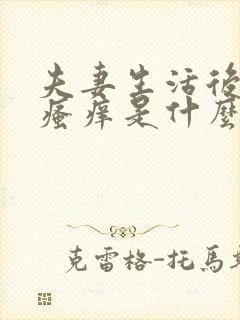 夫妻生活後
瘙痒是什麼
克雷格-托馬斯